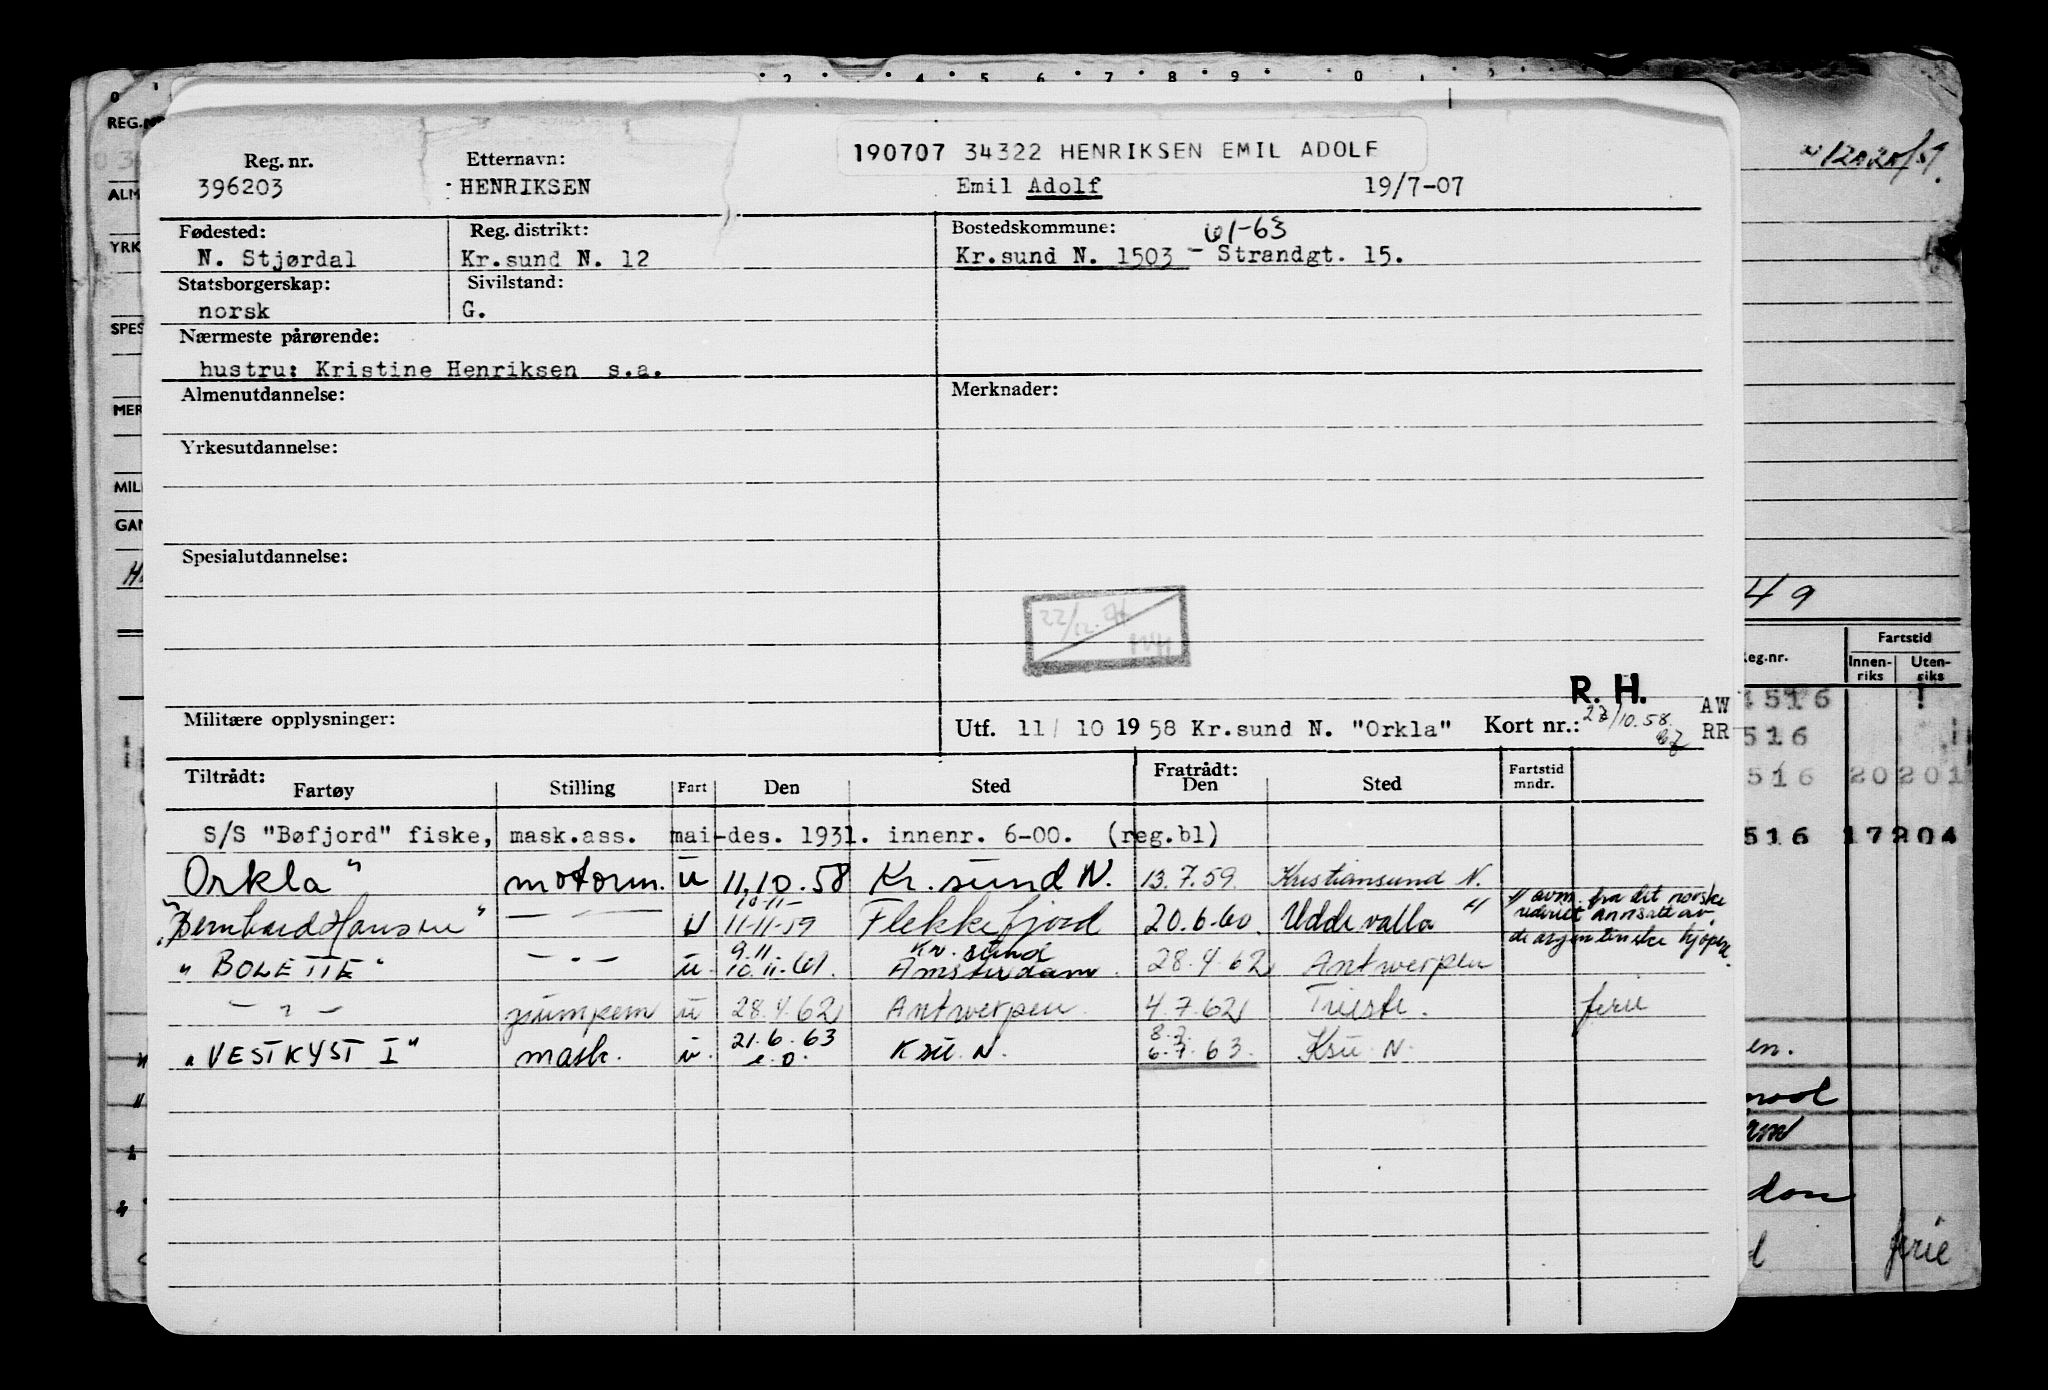 190707 34322 HENRIKSEN EMIL ADOLF
Reg. nr. Etternavn:
396203 HENRIKSEN Emil Adolf 19/7-07
Fødested: Reg. distrikt: Bostedskommune: 61-63
N. Stjørdal Kr.sund N. 12 Kr.sund N. 1503 - Strandgt. 15.
Statsborgerskap: Sivilstand:
norsk G.
Nærmeste pårørende:
hustru: Kristine Henriksen s.a.
Almenutdannelse: Merknader:
Yrkesutdannelse:
Spesialutdannelse:
22/12.71
R. H.
Militære opplysninger: Utf. 11/ 10 1958 Kr.sund N. "Orkla" Kort nr.: 23/10.58. AW
RR
Tiltrådt: Fratrådt:
Fartøy Stilling Fart Den Sted Den Sted Fartstid mndr.
S/S "Bøfjord" fiske, mask.ass. mai-des. 1931. innenr. 6-00. (reg.bl)
Orkla" motorm. u 11.10.58 Kr. sund N. 13.7.59. Kristiansund N.
10-11-
"Bernhard Hansen" - " - u 11-11-59 Flekkefjord 20.6.60. Uddevalla 4) 4) avm. fra det norske
rederiet ansatt av
de argentinske kjøpere.
9.11. Kr. sund
"BOLETTE" - " - u. 10.11.61. Amsterdam. 28.4.62 Antwerpen
- " - pumpem u 28.4.62 Antwerpen 4.7.62 Trieste. ferie
21.6.63 8.7.
"VESTKYST I" mask. u. e.o. Ksu. N. 6.7.63. Ksu. N.
0 2 4 5 6 7 8 9 0
REG.NR
ALM
YRK
SPES
MER
MILI
GAN
49
Reg.nr. Fartstid
Innenriks Utenriks
4516
516
516 20 201
516 17 204
en.
don
ferie